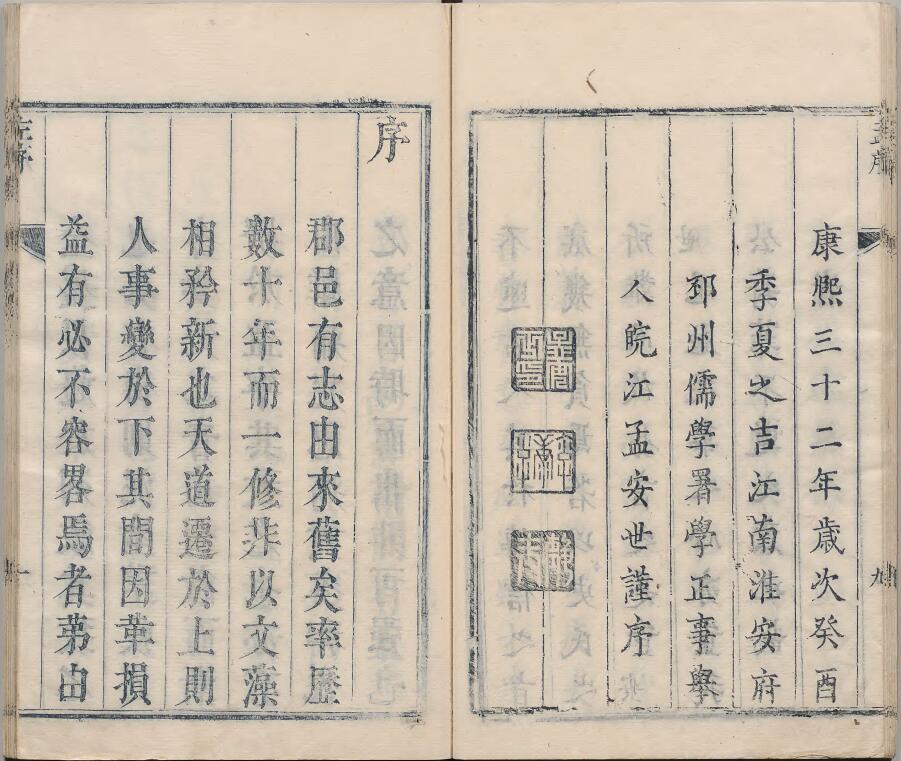 孟序
康熙三十二年歲次癸酉
季夏之吉江南淮安府
邳州儒學署學正事舉
人皖江孟安世謹序
九
序
郡邑有志由來舊矣率歷
數十年而一修非以文藻
相矜新也天道遷於上則
人事變於下其間因革損
益有必不容畧焉者苐由
序
一